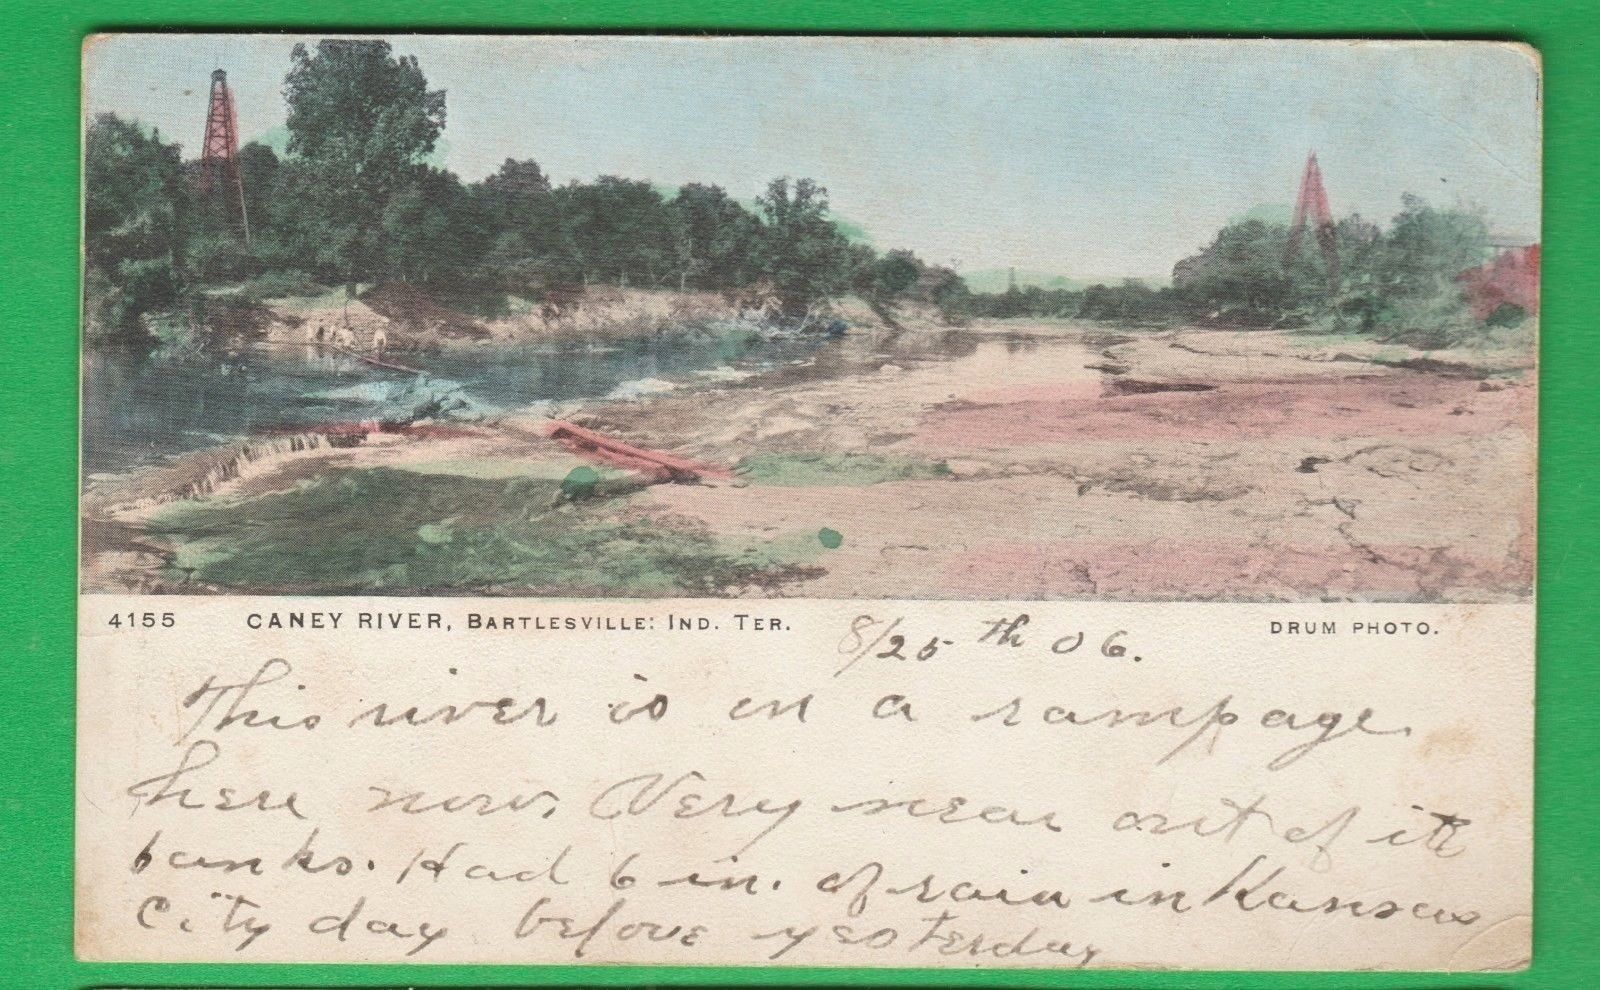 4155 CANEY RIVER, BARTLESVILLE: IND. TER.
DRUM PHOTO.
8/25th 06.
This river is on a rampage
here now. Very near out of its
banks. Had 6 in. of rain in Kansas
City day before yesterday